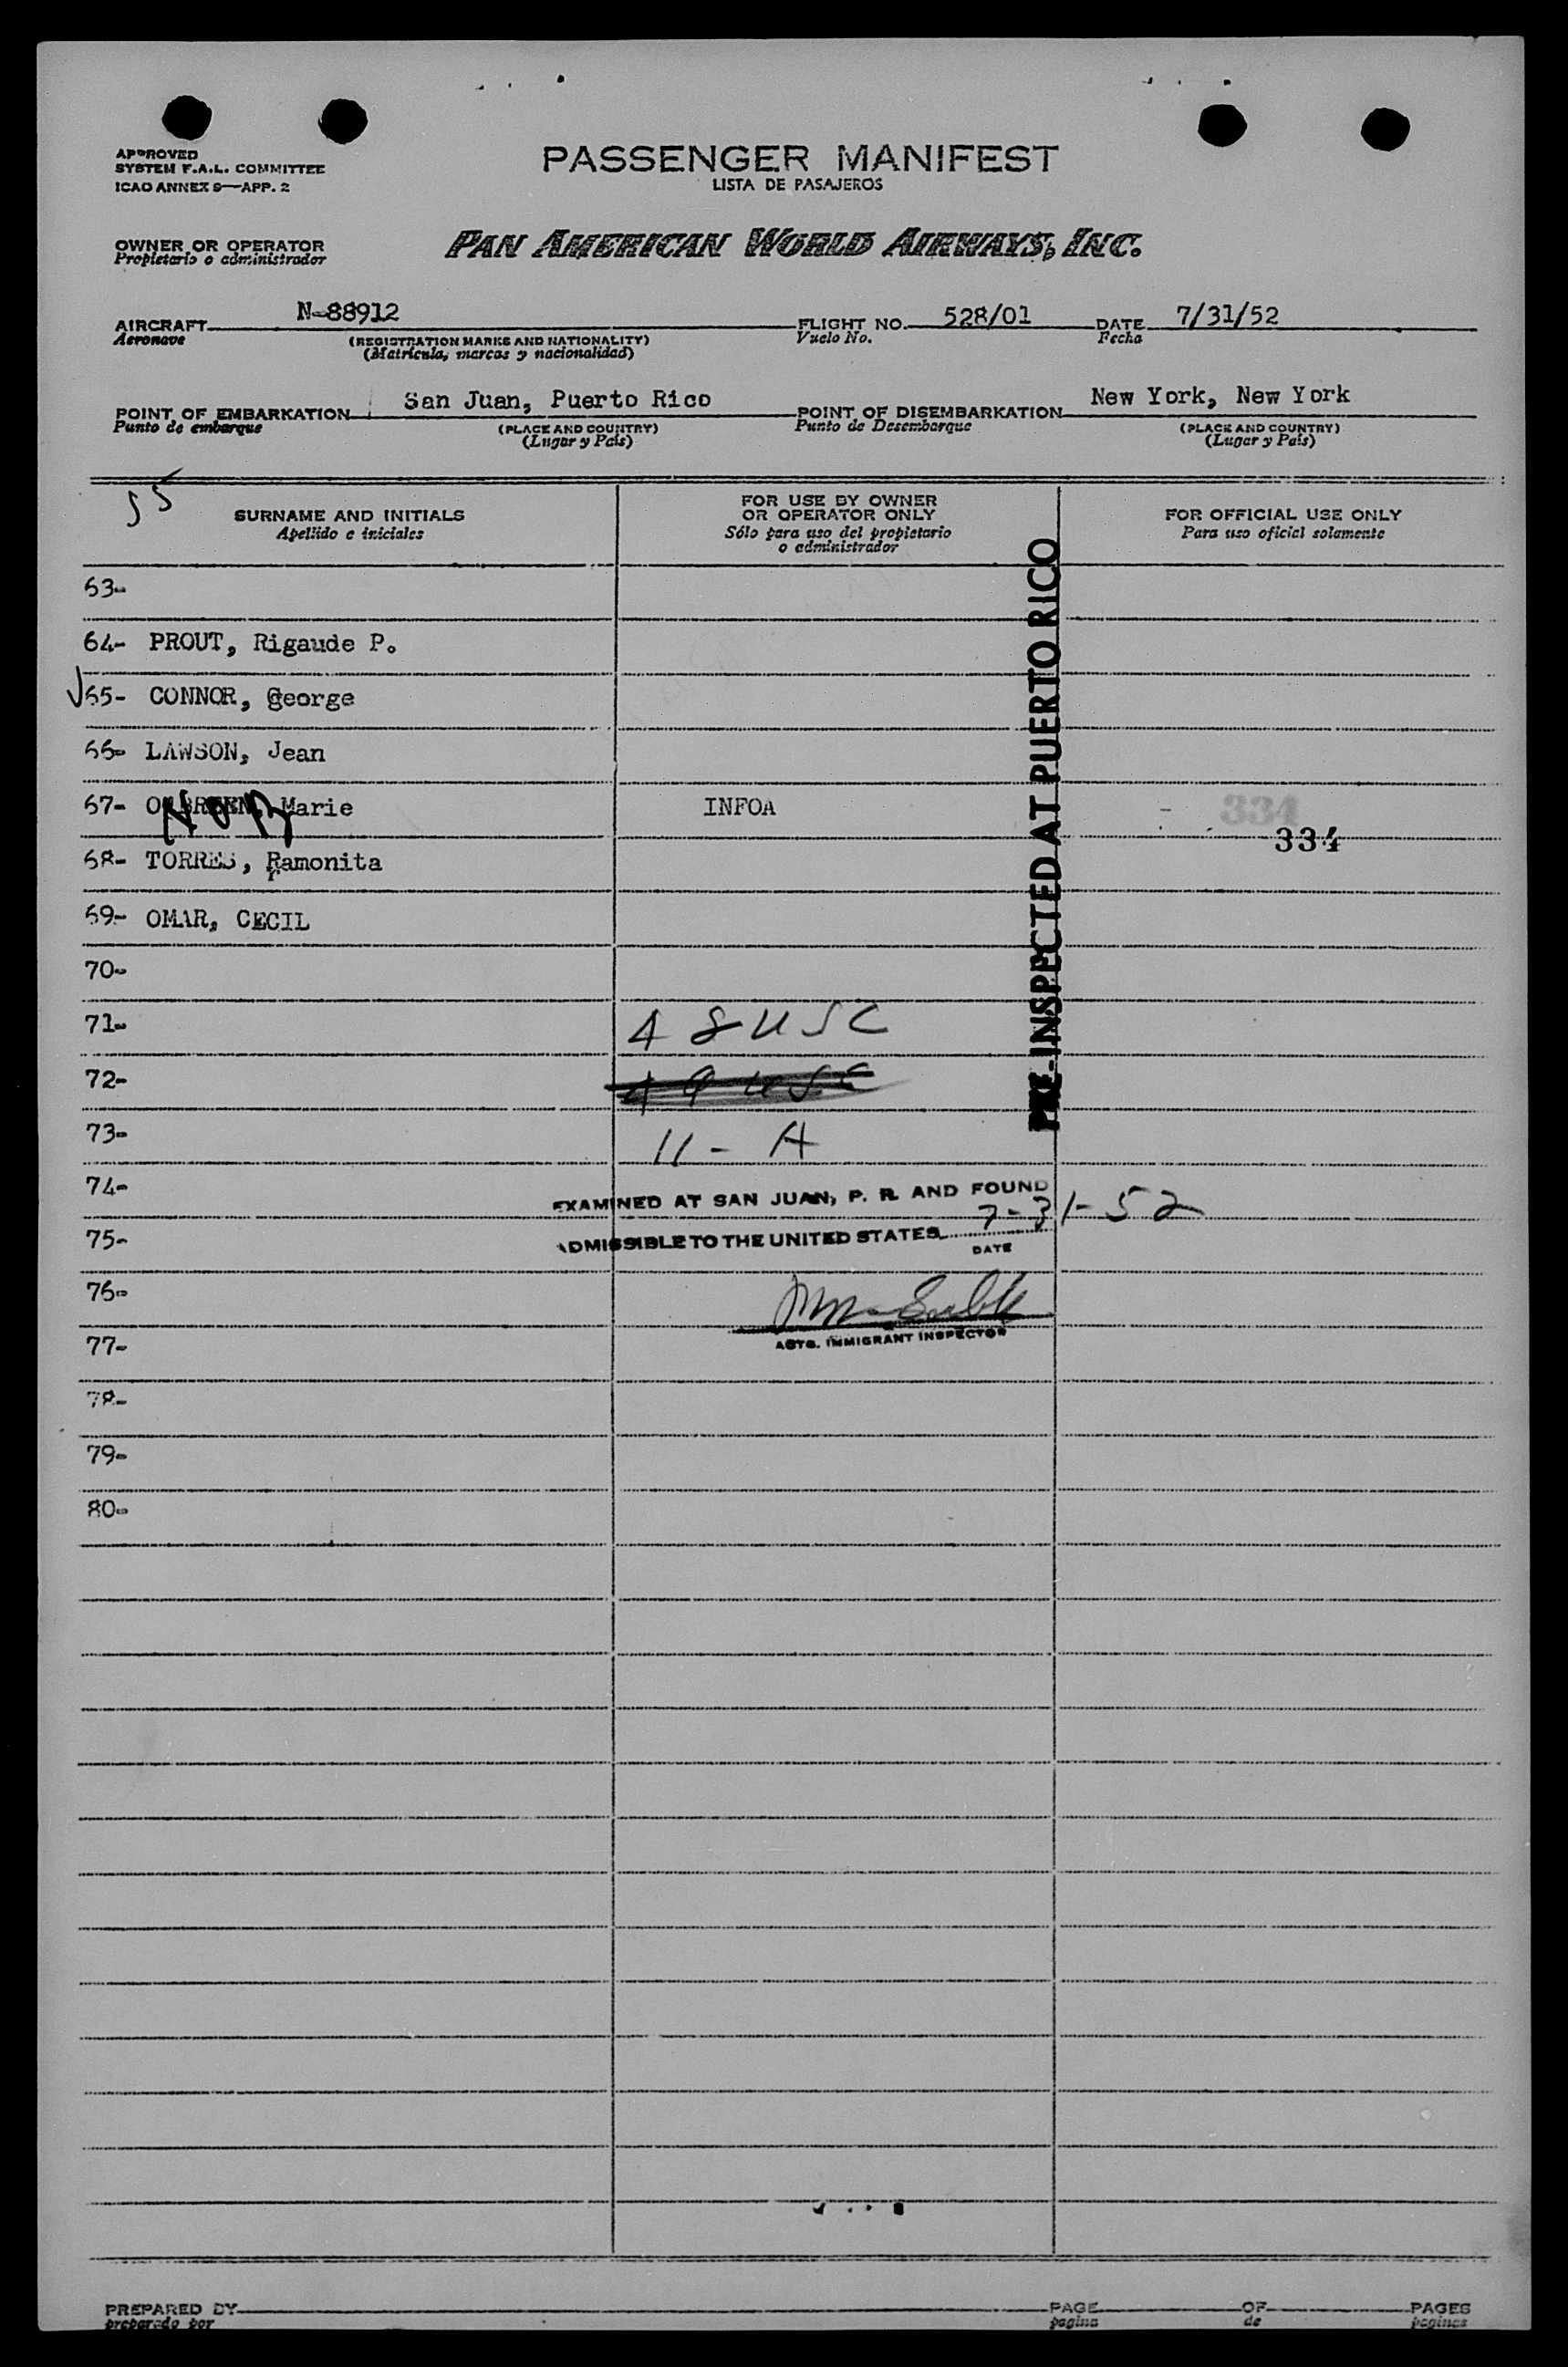 APPROVED
SYSTEM F.A.L. COMMITTEE
ICAO ANNEX 9—APP. 2
PASSENGER MANIFEST
LISTA DE PASAJEROS
OWNER OR OPERATOR
Propietario o administrador
PAN AMERICAN WORLD AIRWAYS, INC.
AIRCRAFT N-88912
Aeronave
(REGISTRATION MARKS AND NATIONALITY)
(Matrícula, marcas y nacionalidad)
FLIGHT NO. 528/01
Vuelo No.
DATE 7/31/52
Fecha
POINT OF EMBARKATION San Juan, Puerto Rico
Punto de embarque
(PLACE AND COUNTRY)
(Lugar y País)
POINT OF DISEMBARKATION New York, New York
Punto de Desembarque
(PLACE AND COUNTRY)
(Lugar y País)
55
SURNAME AND INITIALS
Apellido e iniciales
FOR USE BY OWNER
OR OPERATOR ONLY
Sólo para uso del propietario
o administrador
FOR OFFICIAL USE ONLY
Para uso oficial solamente
63-
64- PROUT, Rigaude P.
65- CONNOR, George
66- LAWSON, Jean
67- Marie INFOA 334
334
68- TORRES, Ramonita
69- OMAR, CECIL
70-
71- 4 8 USC
72-
73- 11 - A
74-
75-
76-
77-
78-
79-
80-
PRE-INSPECTED AT PUERTO RICO
EXAMINED AT SAN JUAN, P. R. AND FOUND
ADMISSIBLE TO THE UNITED STATES 7-31-52
DATE
ACTG. IMMIGRANT INSPECTOR
PREPARED BY
preparado por
PAGE OF PAGES
pagina de paginas